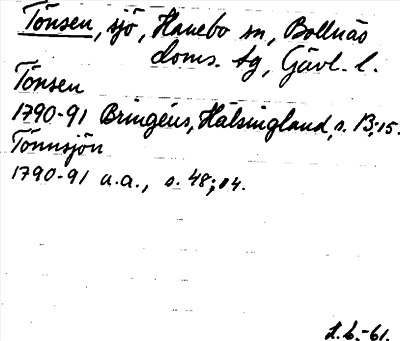 Tönsen, sjö, Hanebo sn, Bollnäs
doms. tg, Gävl. l.
Tönsen
1790-91 Bringéus, Hälsingland, s. 13;15.
Tönnsjön
1790-91 a.a., s. 48;84.
L.L.-61.